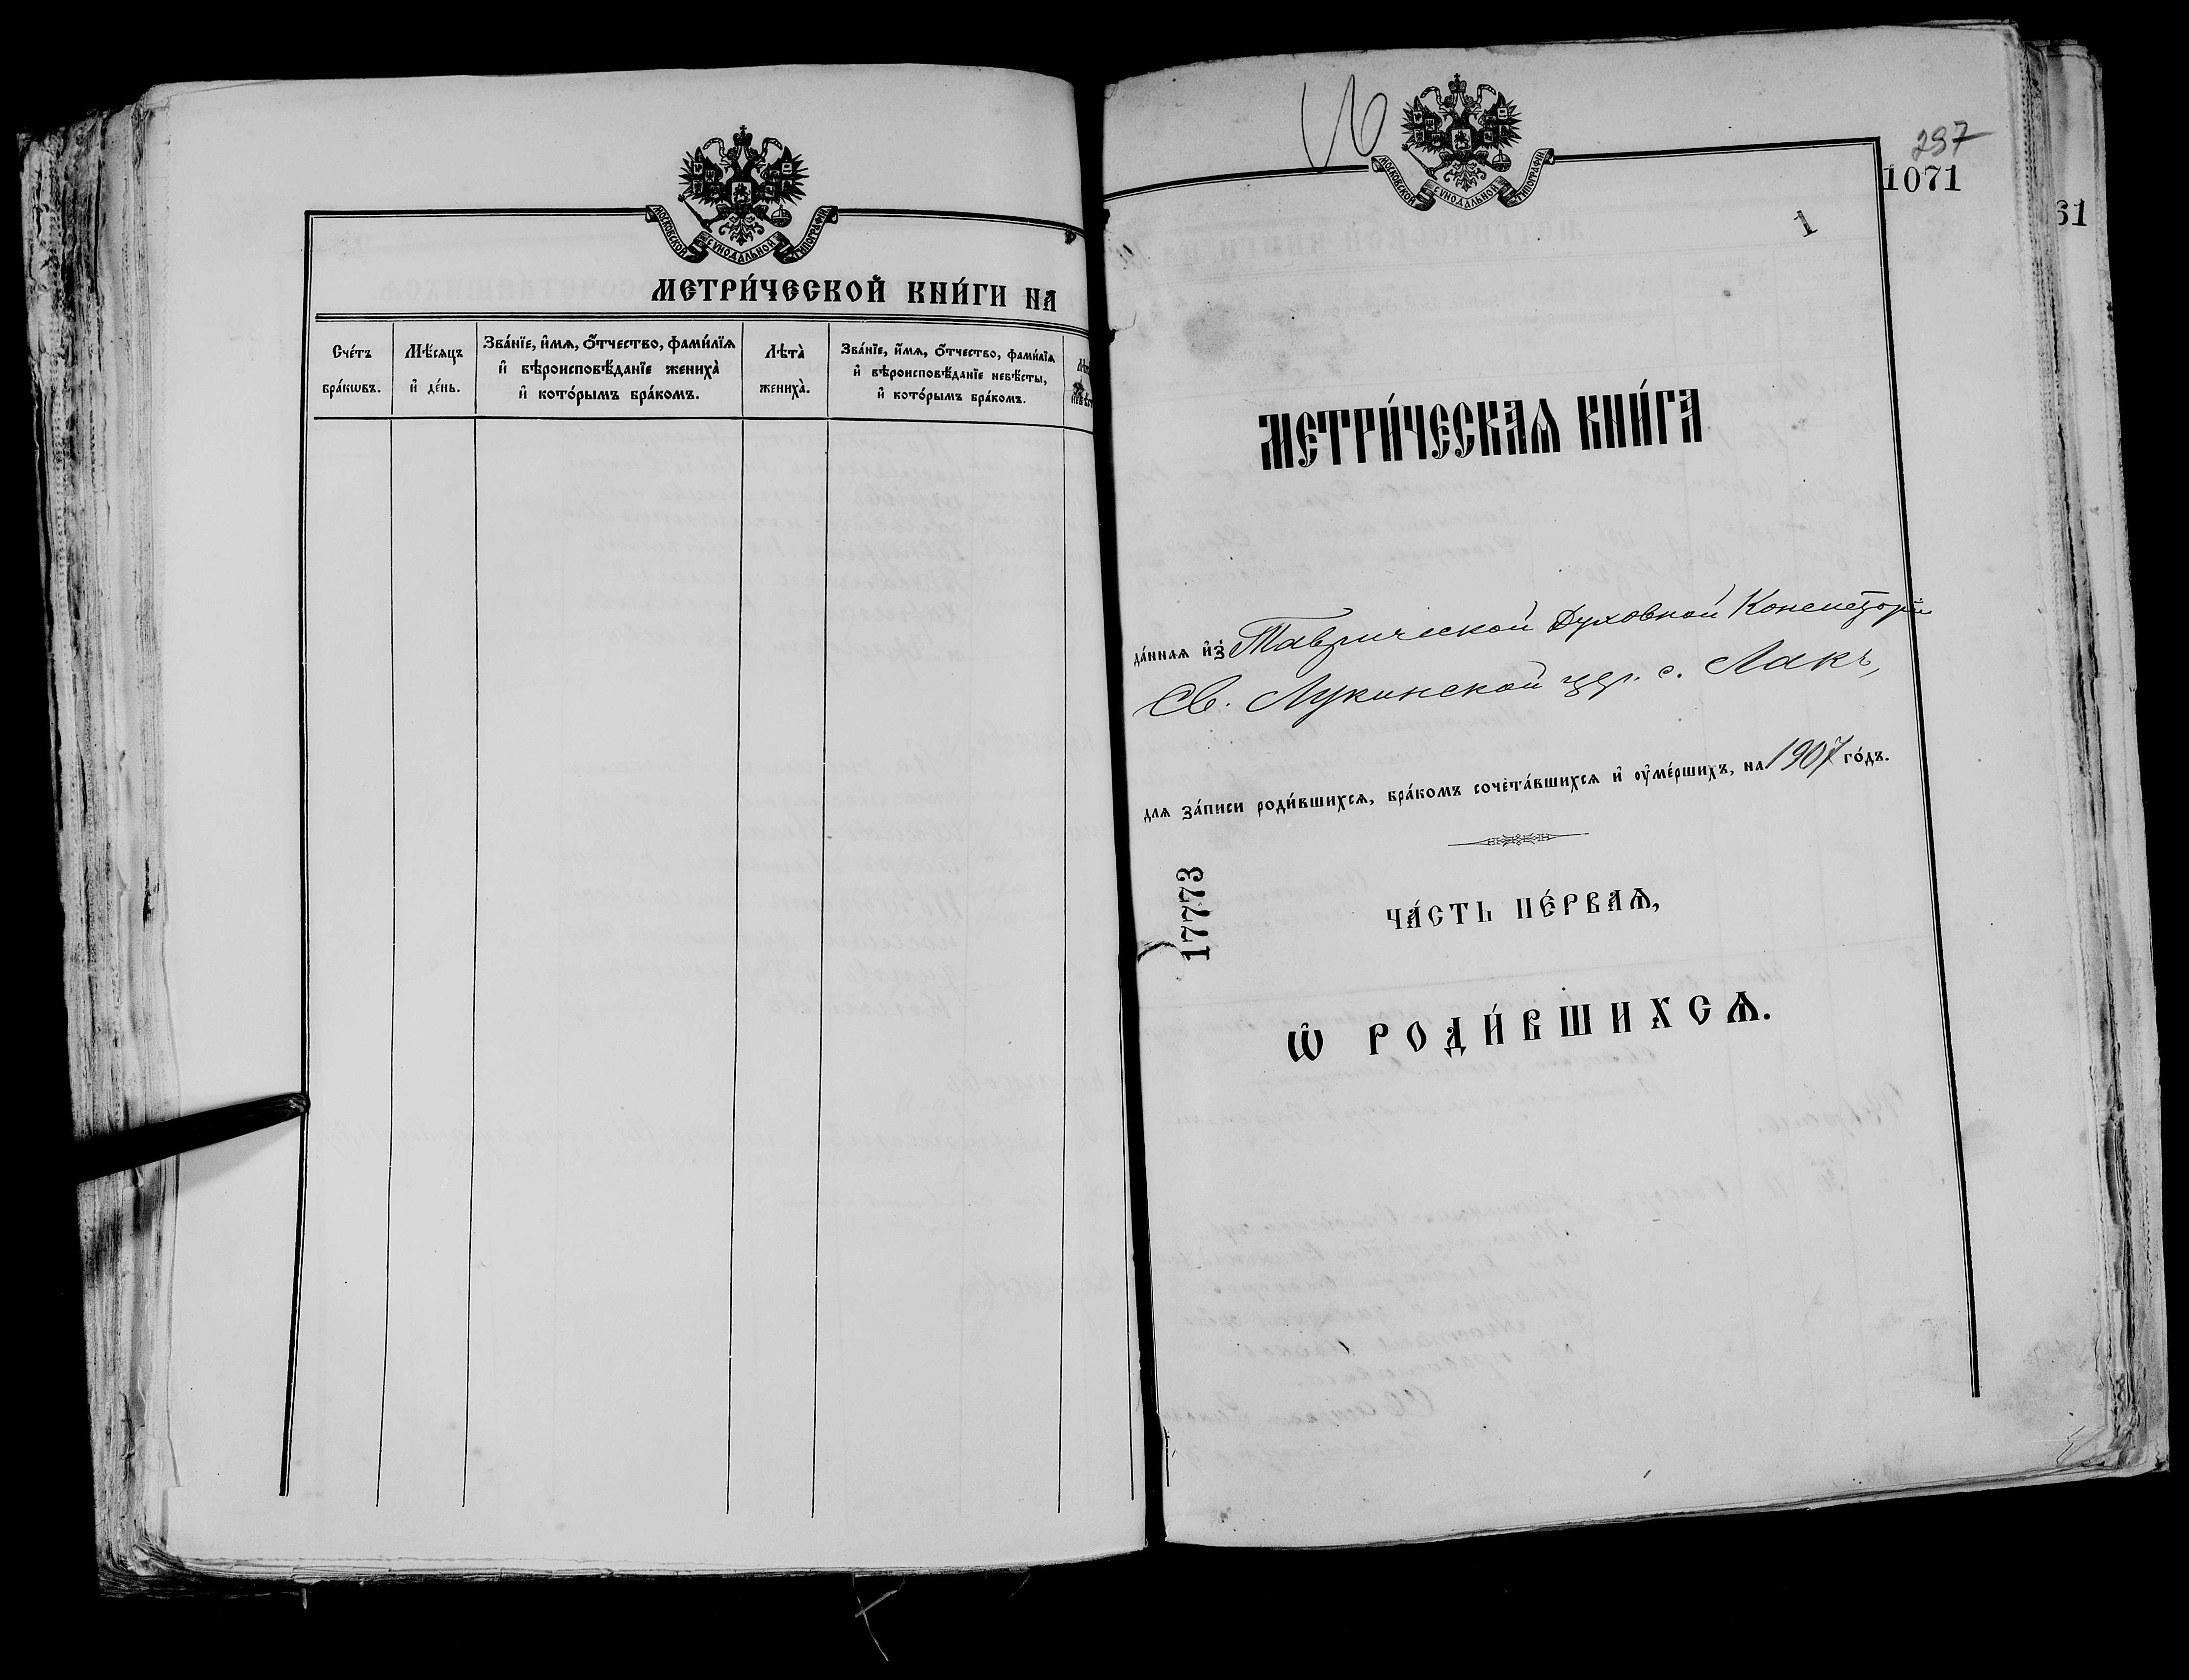 МОСКОВСКОЙ СѴНОДАЛЬНОЙ ТИПОГРАФІИ
МЕТРИ́ЧЕСКОЙ КНИ́ГИ НА
Сче́тъ
бра́кѡвъ.
Мѣ́сяцъ
и҆ де́нь.
Зва́нїе, и҆́мѧ, ѻ҆́тчество, фами́лїѧ
и҆ вѣроисповѣ́данїе жениха̀
и҆ кото́рымъ бра́комъ.
Лѣта̀
жениха̀.
Зва́нїе, и҆́мѧ, ѻ҆́тчество, фами́лїѧ
и҆ вѣроисповѣ́данїе невѣ́сты,
и҆ кото́рымъ бра́комъ.
16
МОСКОВСКОЙ СѴНОДАЛЬНОЙ ТИПОГРАФІИ
297
1071
61
1
МЕТРИ́ЧЕСКАѦ КНИ́ГА
да́ннаѧ и҆з̾ Таврической Духовной Консисторіи
Св. Лукинской цер. с. Лакъ,
длѧ за́писи роди́вшихсѧ, бра́комъ сочета́вшихсѧ и҆ ᲂу҆ме́ршихъ, на 1907 го́дъ.
17773
ЧА́СТЬ ПЕ́РВАѦ,
Ѡ҆ РОДИ́ВШИХСѦ.